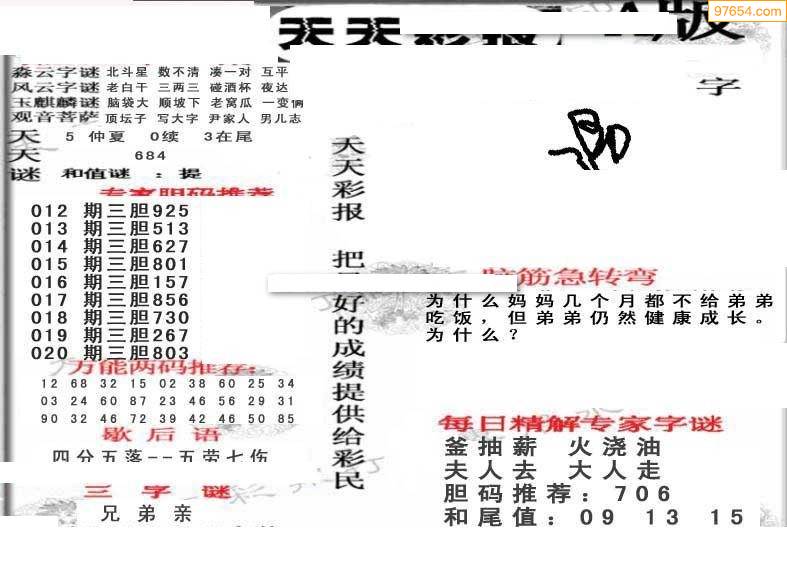 97654.com
天天彩报 A版
字
森云字谜 北斗星 数不清 凑一对 互平
风云字谜 老白干 三两三 碰酒杯 夜达
玉麒麟谜 脑袋大 顺坡下 老窝瓜 一变俩
观音菩萨 顶坛子 写大字 尹家人 男儿志
天 5 仲夏 0续 3在尾
天 684
谜 和值谜 : 提
专家胆码推荐
012 期三胆925
013 期三胆513
014 期三胆627
015 期三胆801
016 期三胆157
017 期三胆856
018 期三胆730
019 期三胆267
020 期三胆803
万能两码推荐:
12 68 32 15 02 38 60 25 34
03 24 60 87 23 46 56 29 31
90 32 46 72 39 42 46 50 85
歇后语
四分五落--五劳七伤
三字谜
兄弟亲
天天彩报 把最好的成绩提供给彩民
脑筋急转弯
为什么妈妈几个月都不给弟弟
吃饭，但弟弟仍然健康成长。
为什么？
每日精解专家字谜
釜抽薪 火浇油
夫人去 大人走
胆码推荐: 706
和尾值: 09 13 15